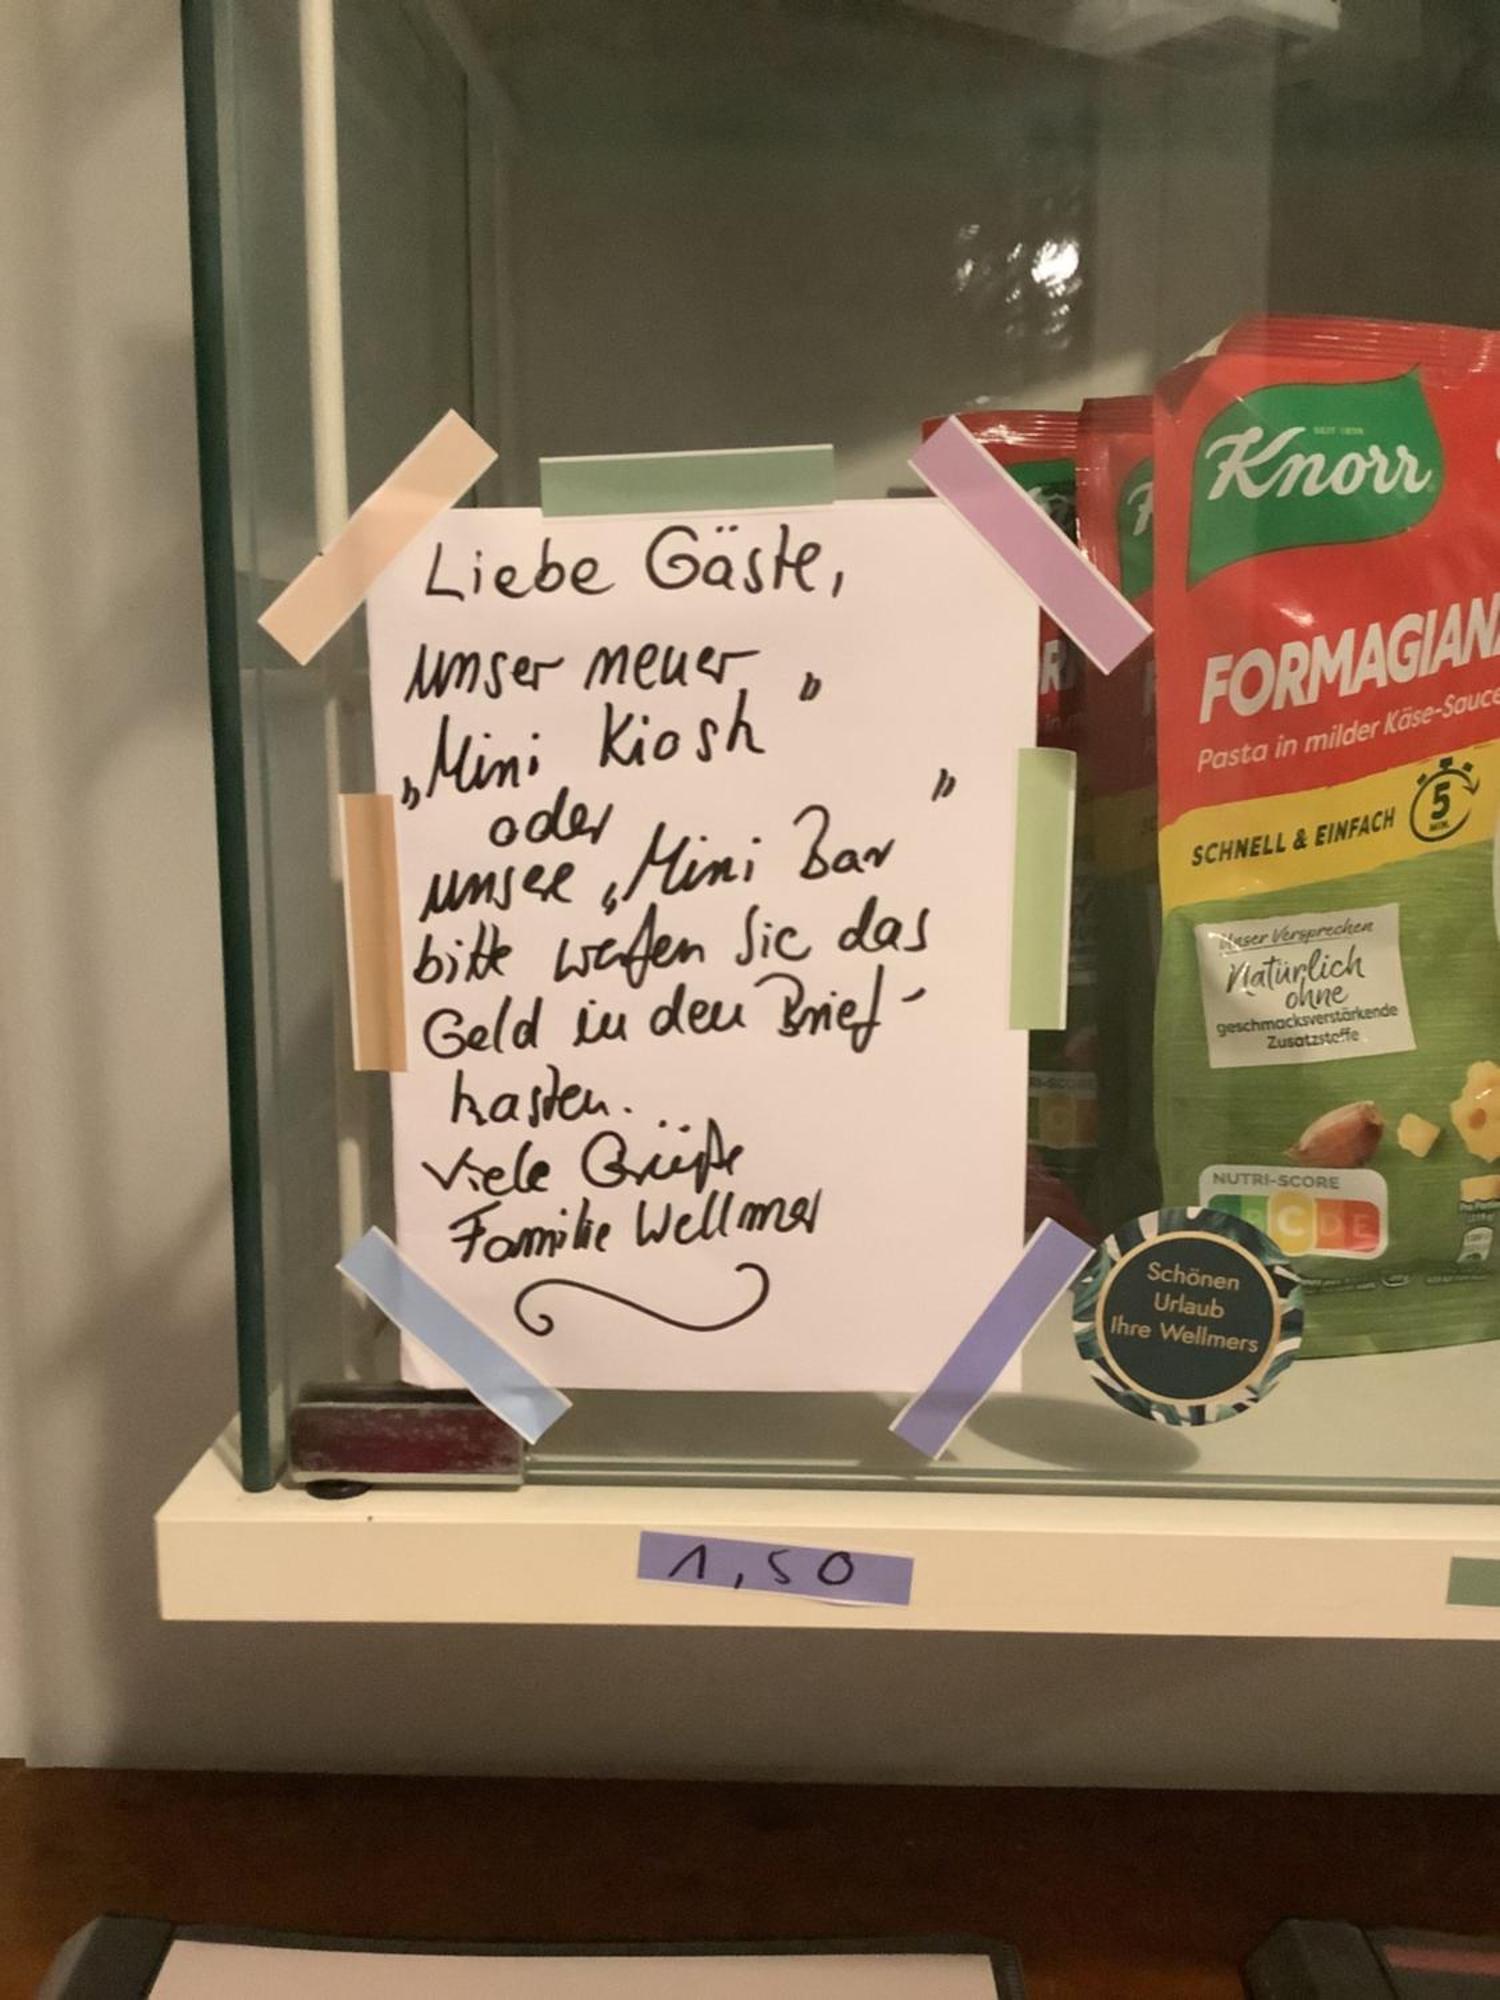 Liebe Gäste,
unser neuer
„Mini Kiosk"
oder
unsere „Mini Bar"
bitte werfen Sie das
Geld in den Brief-
kasten.
Viele Grüße
Familie Wellmer
1,50
Knorr
SEIT 1838
FORMAGIAN
Pasta in milder Käse-Sauce
SCHNELL & EINFACH
5
MIN.
Unser Versprechen
Natürlich
ohne
geschmacksverstärkende
Zusatzstoffe
NUTRI-SCORE
B C D E
Schönen
Urlaub
Ihre Wellmers